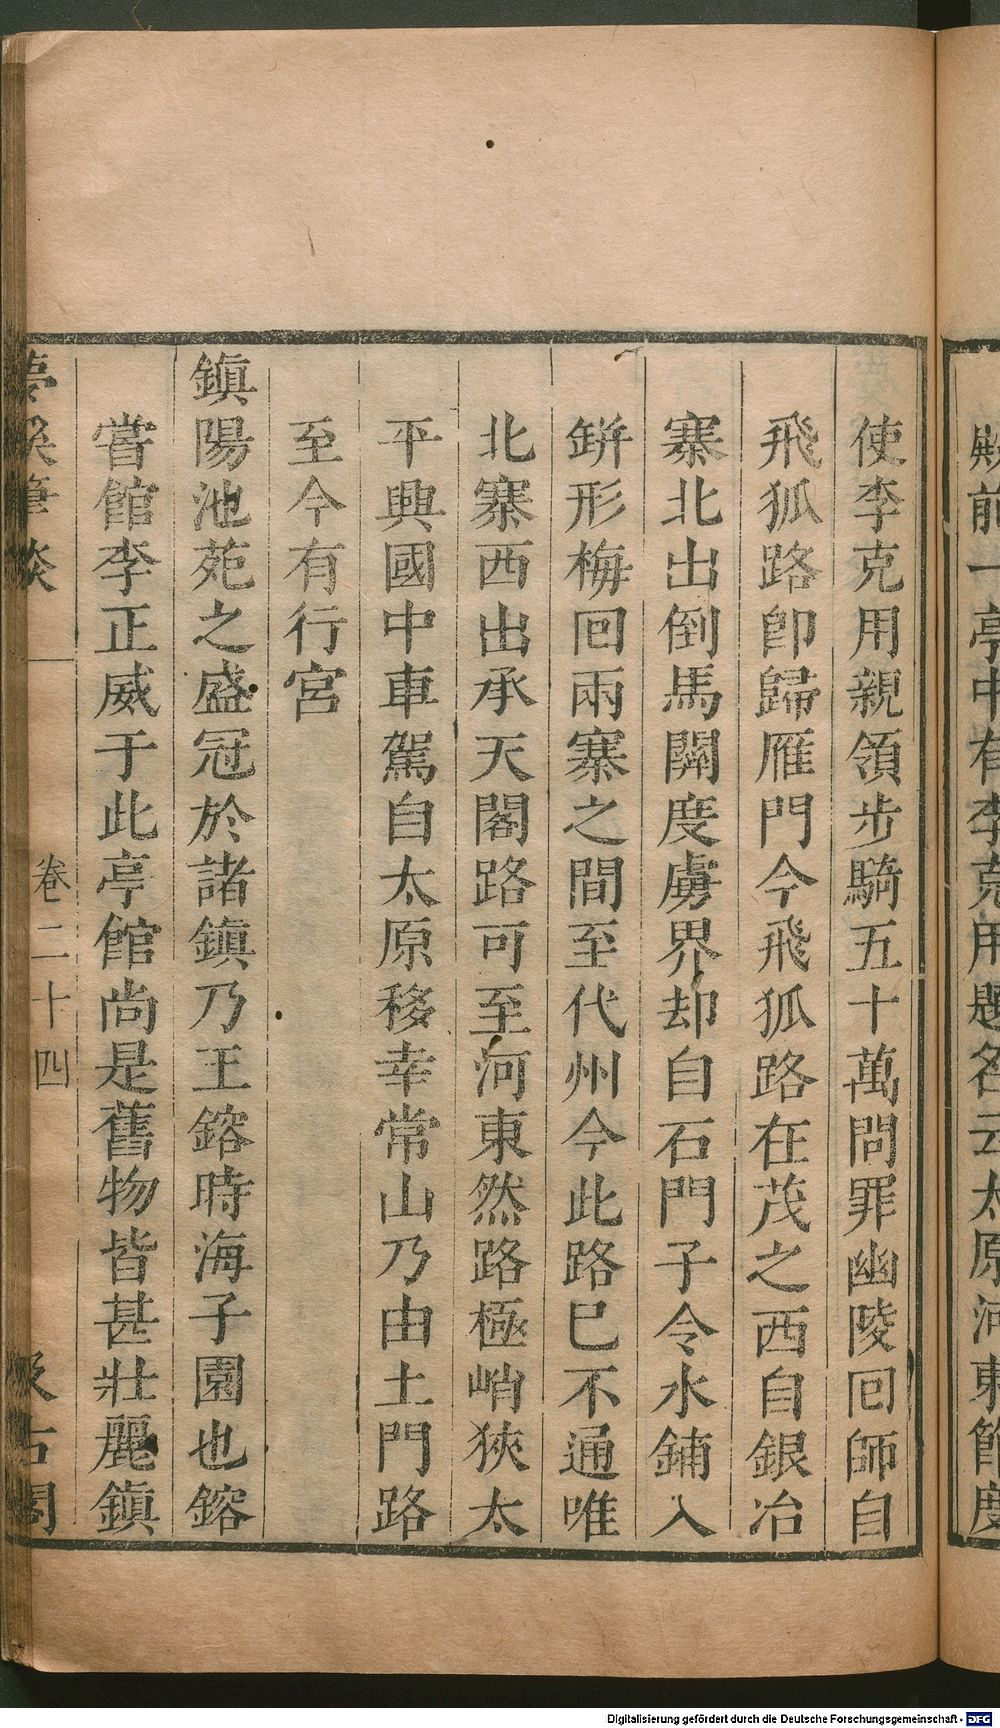 殿前一亭中有李克用題名云太原河東節度
使李克用親領步騎五十萬問罪幽陵回師自
飛狐路卽歸雁門今飛狐路在茂之西自銀冶
寨北出倒馬關度虜界却自石門子令水鋪入
缾形梅回兩寨之間至代州今此路已不通唯
北寨西出承天閣路可至河東然路極峭狹太
平興國中車駕自太原移幸常山乃由土門路
至今有行宮
鎭陽池苑之盛冠於諸鎭乃王鎔時海子園也鎔
嘗館李正威于此亭館尚是舊物皆甚壯麗鎭
夢溪筆談 卷二十四 汲古閣
Digitalisierung gefördert durch die Deutsche Forschungsgemeinschaft - DFG